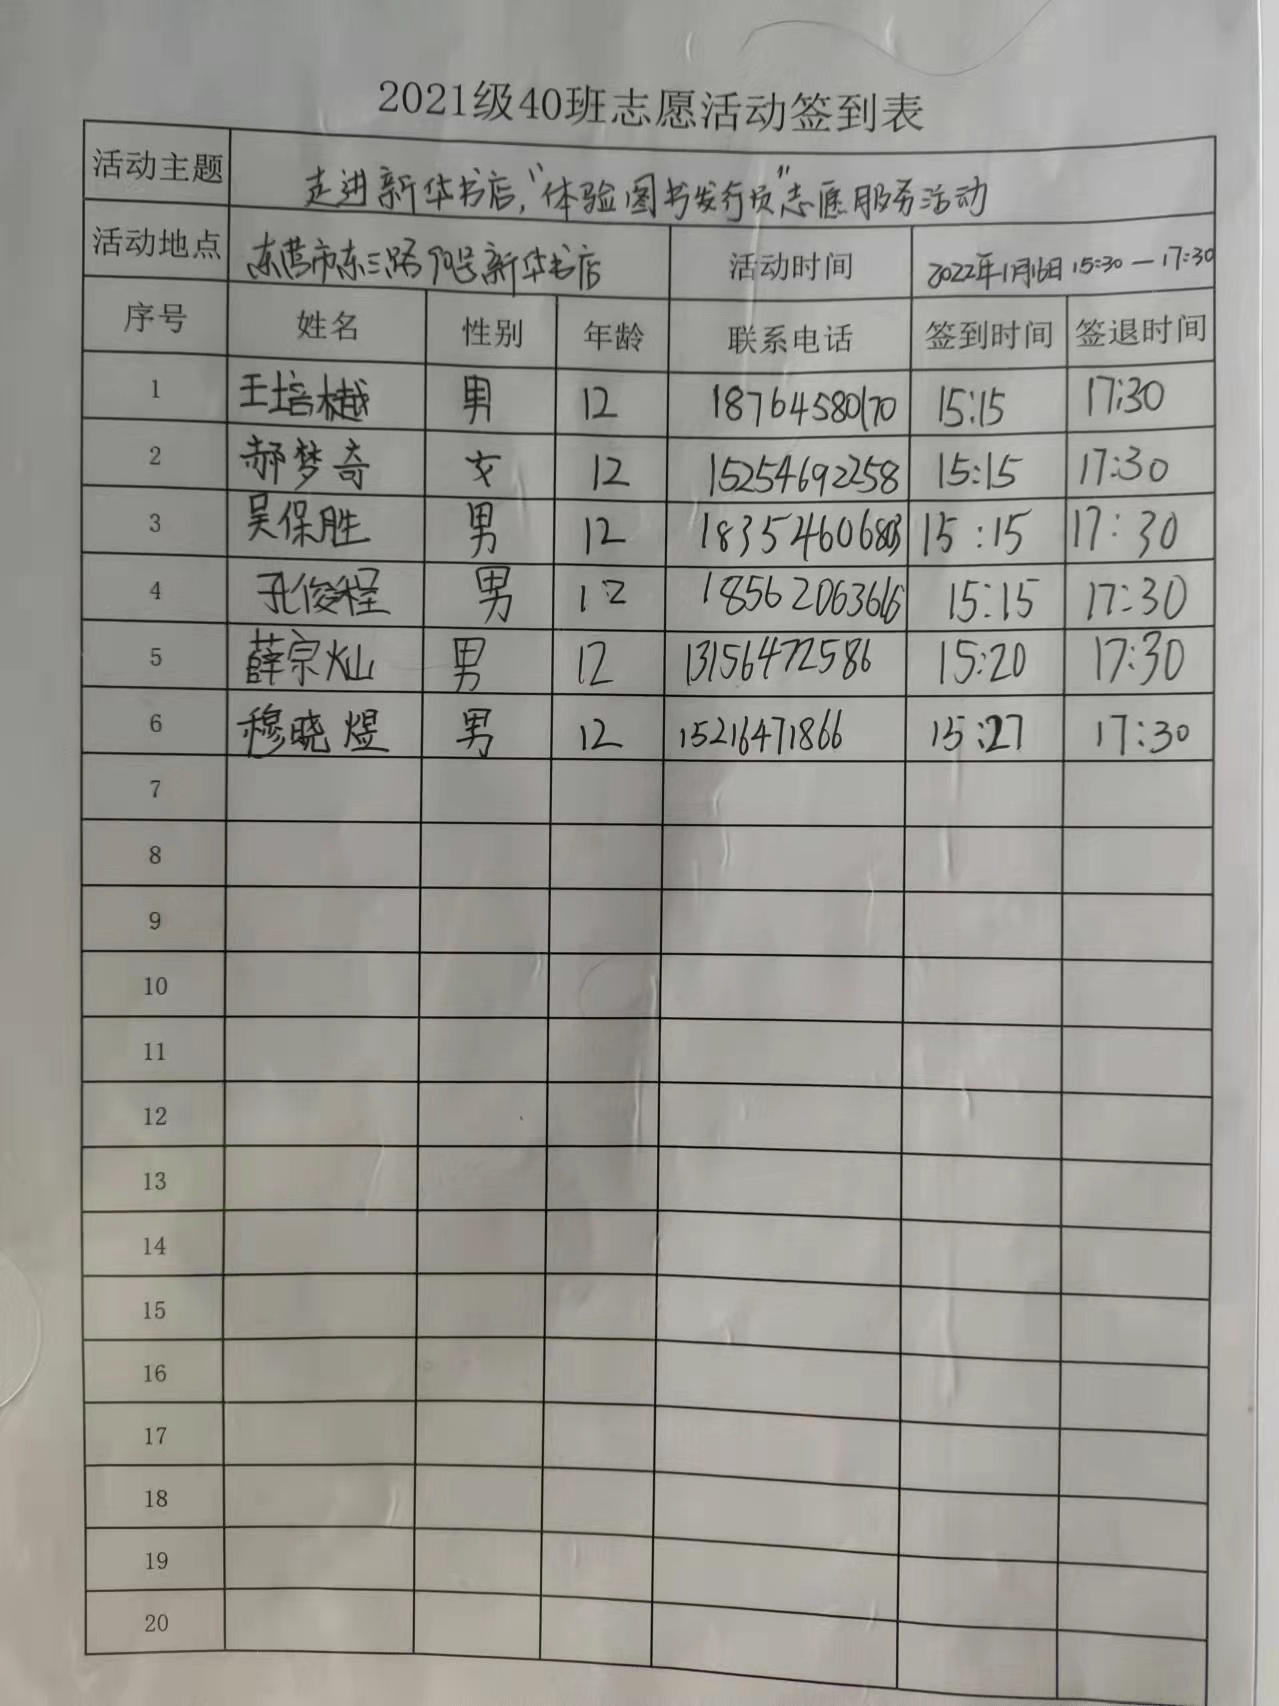 2021级40班志愿活动签到表
活动主题 走进新华书店，"体验图书发行员"志愿服务活动
活动地点 东营市东三路90号新华书店 活动时间 2022年1月16日 15:30 — 17:30
序号 姓名 性别 年龄 联系电话 签到时间 签退时间
1 王培樾 男 12 18764580170 15:15 17:30
2 郝梦奇 女 12 15254692258 15:15 17:30
3 吴保胜 男 12 18354606803 15:15 17:30
4 孔俊程 男 12 18562063616 15:15 17:30
5 薛宗灿 男 12 13156472586 15:20 17:30
6 穆晓煜 男 12 15216471866 15:27 17:30
7
8
9
10
11
12
13
14
15
16
17
18
19
20